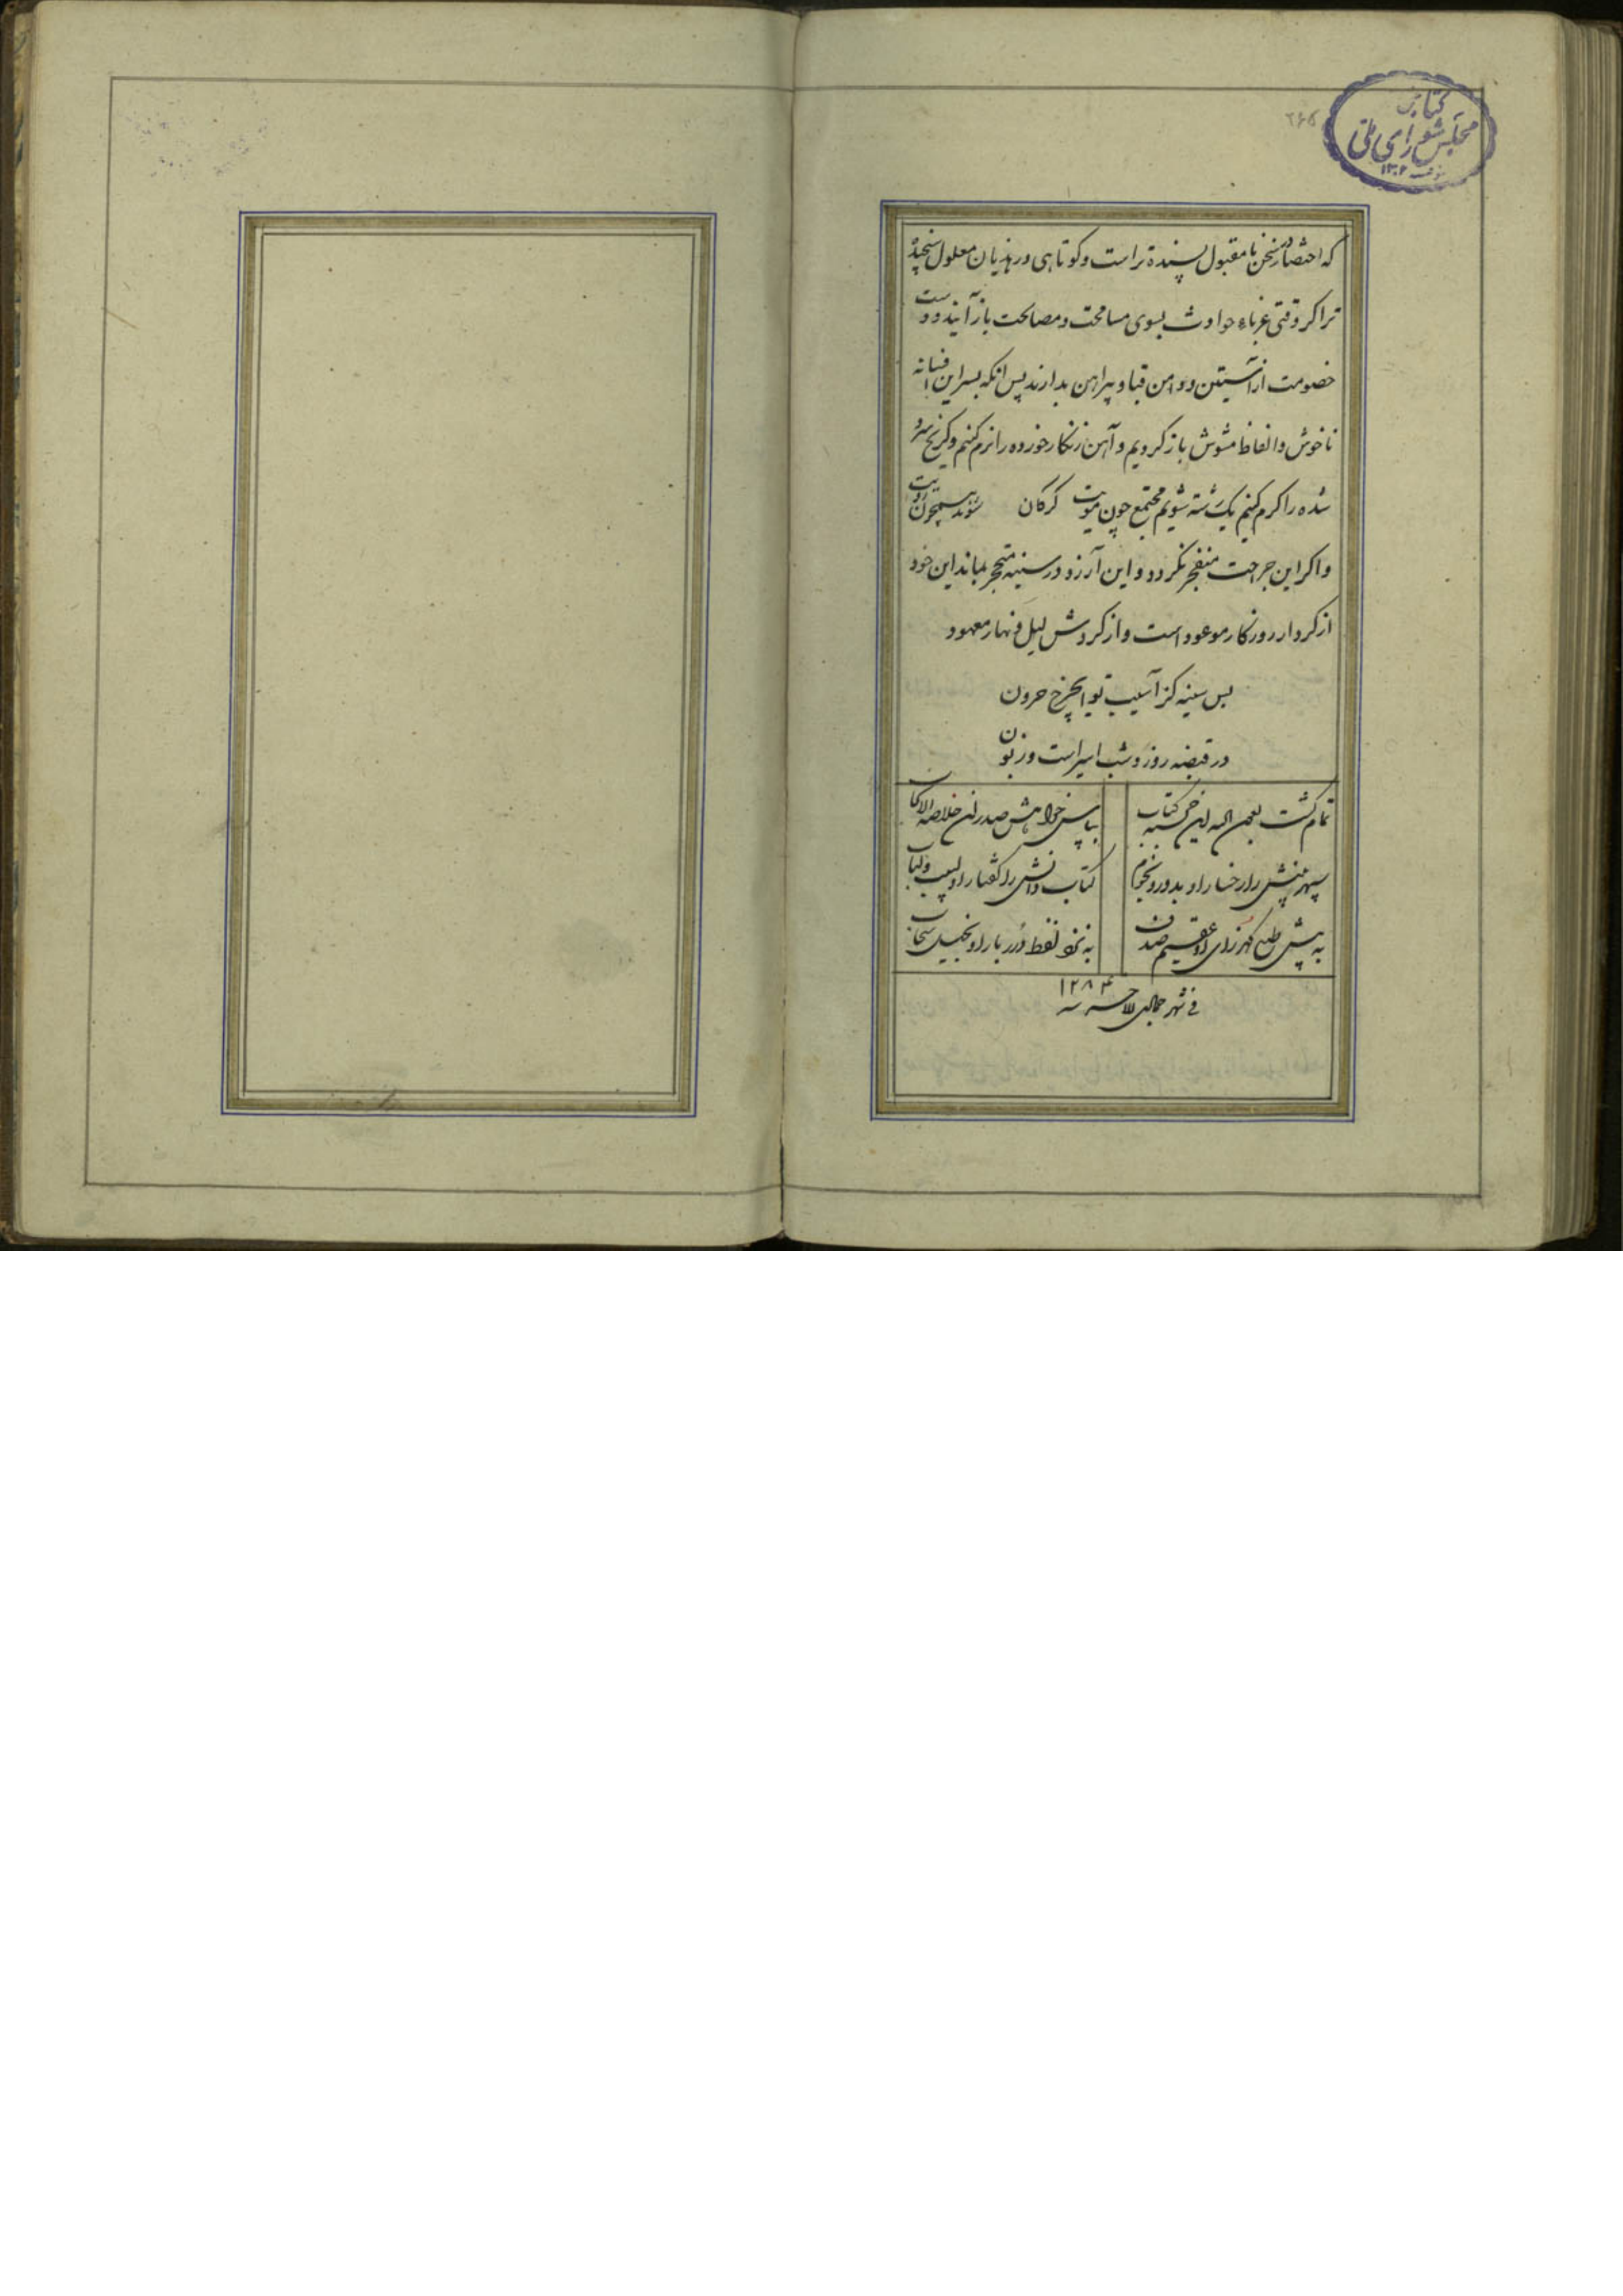 ۲۶۵
کتابخانه
مجلس شورای ملی
۱۳۰۲
که اختصار در سخن نامقبول پسندیده‌تر است و کوتاهی در هذیان معلول سنجیده
تر اگر وقتی غرباء حوادث بسوی مسامحت و مصالحت باز آیند و دست
خصومت از آستین و دامن قبا و پیراهن بدارند پس آنکه بسر این افسانه
ناخوش و الفاظ مشوش باز گردیم و آهن زنگار خورده را نرم کنیم و کریخ سرد
شده را گرم کنیم یک رشته شویم مجتمع چون موت گرگان شوند همچون
واکر این جراحت منفجر نگردد و این آرزو در سینه متحجر بماند این خود
از کردار روزکار موعود است و از کردش لیل و نهار معهود
بس سینه کز آسیب تو ای چرخ حرون
در قبضه روز و شب اسیر است و زبون
تمام گشت بعون اله این خجسته کتاب
بپاس خواهش صدر زمن خلاصه الانجاب
سپهر بینش را رخسار او بدور و نجوم
کتاب دانش را گفتار او لبیب و لباب
به پیش طبع گهرزای او عقیم صدف
به نزد لفظ درر بار او بخیل سحاب
فی شهر جمادی الاخر سنه ۱۲۸۴